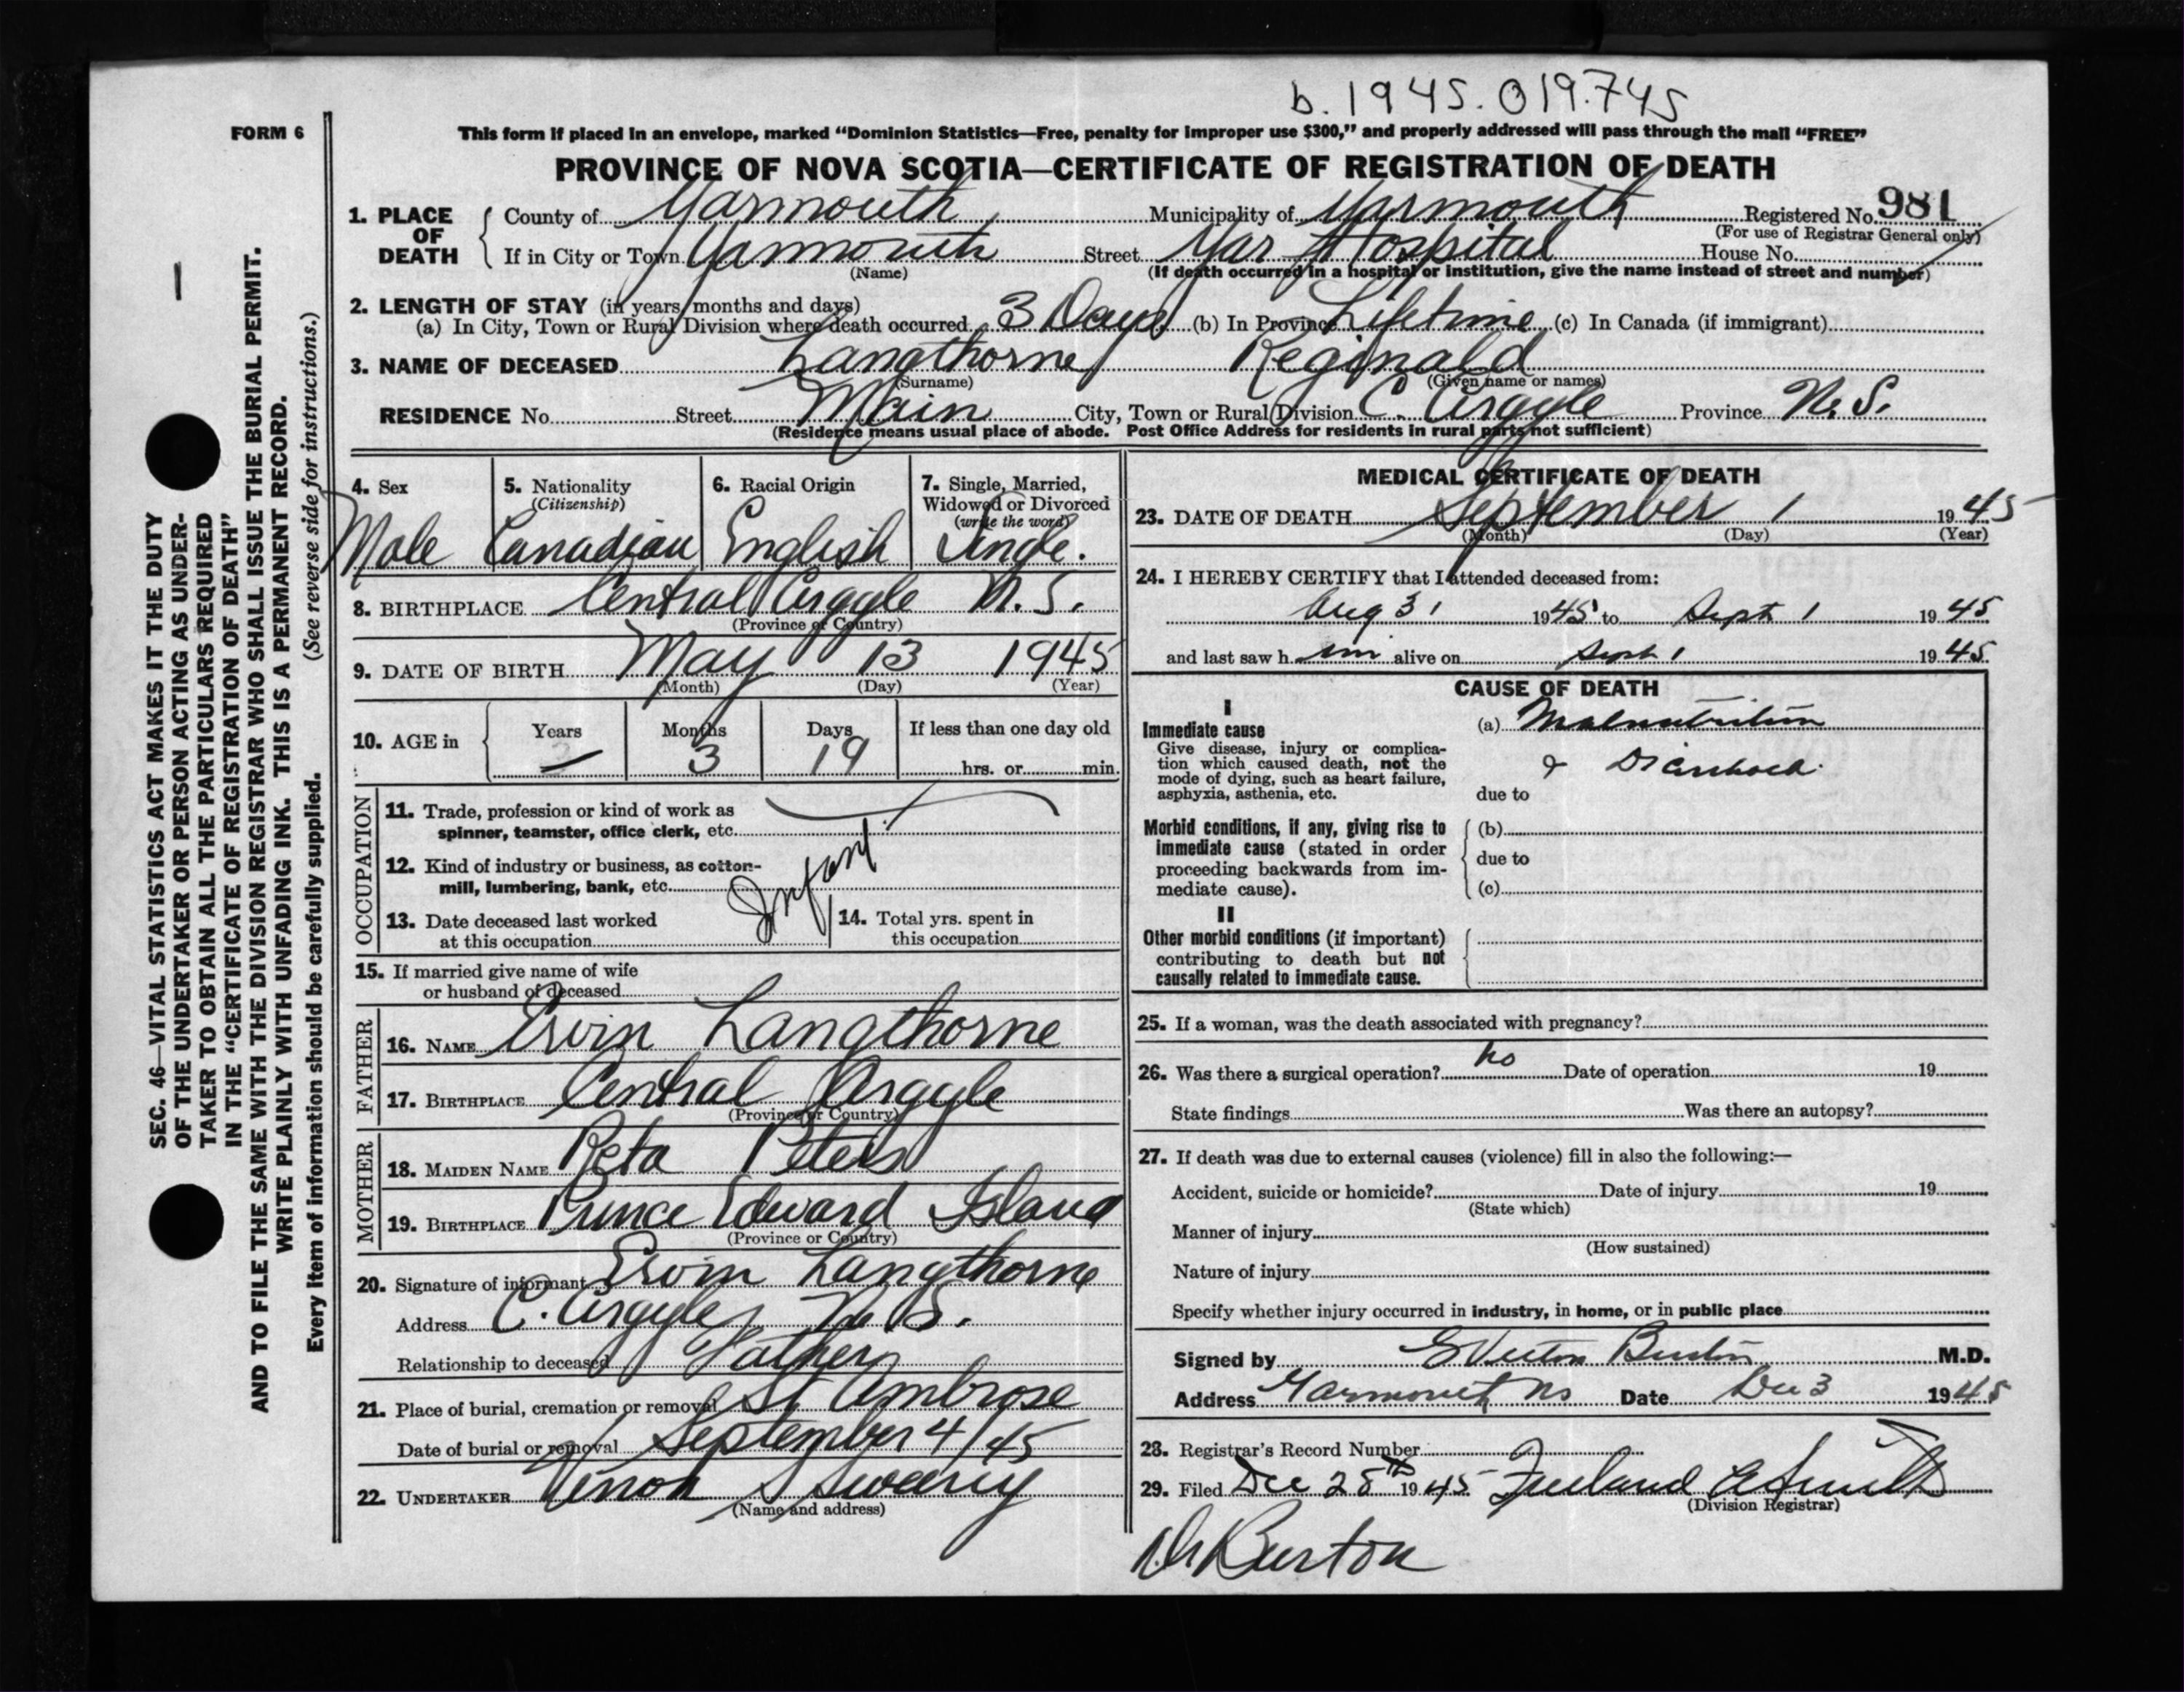 b. 1945. 019.745
FORM 6
This form if placed in an envelope, marked "Dominion Statistics—Free, penalty for improper use $300," and properly addressed will pass through the mail "FREE"
PROVINCE OF NOVA SCOTIA—CERTIFICATE OF REGISTRATION OF DEATH
1. PLACE OF DEATH County of Yarmouth Municipality of Yarmouth Registered No. 981
(For use of Registrar General only)
If in City or Town Yarmouth Street Yar Hospital House No.
(Name) (If death occurred in a hospital or institution, give the name instead of street and number)
2. LENGTH OF STAY (in years, months and days)
(a) In City, Town or Rural Division where death occurred 3 Days (b) In Province Lifetime (c) In Canada (if immigrant)
3. NAME OF DECEASED Langthorne Reginald
(Surname) (Given name or names)
RESIDENCE No. Street Main City, Town or Rural Division C. Argyle Province N. S.
(Residence means usual place of abode. Post Office Address for residents in rural parts not sufficient)
4. Sex 5. Nationality 6. Racial Origin 7. Single, Married,
(Citizenship) Widowed or Divorced
(write the word)
Male Canadian English Single.
8. BIRTHPLACE Central Argyle N. S.
(Province or Country)
9. DATE OF BIRTH May 13 1945
(Month) (Day) (Year)
10. AGE in Years Months Days If less than one day old
3 19 hrs. or min.
OCCUPATION
11. Trade, profession or kind of work as
spinner, teamster, office clerk, etc.
12. Kind of industry or business, as cotton-
mill, lumbering, bank, etc. Infant
13. Date deceased last worked
at this occupation
14. Total yrs. spent in
this occupation
15. If married give name of wife
or husband of deceased
FATHER
16. NAME Ervin Langthorne
17. BIRTHPLACE Central Argyle
(Province or Country)
MOTHER
18. MAIDEN NAME Reta Peters
19. BIRTHPLACE Prince Edward Island
(Province or Country)
20. Signature of informant Ervin Langthorne
Address C. Argyle, N. S.
Relationship to deceased Father
21. Place of burial, cremation or removal St Ambrose
Date of burial or removal September 4/45
22. UNDERTAKER Vernon Sweeny
(Name and address)
MEDICAL CERTIFICATE OF DEATH
23. DATE OF DEATH September 1 1945
(Month) (Day) (Year)
24. I HEREBY CERTIFY that I attended deceased from:
Aug 31 1945 to Sept 1 1945
and last saw him alive on Sept 1 1945
CAUSE OF DEATH
I
Immediate cause (a) Malnutrition
Give disease, injury or complica-
tion which caused death, not the
mode of dying, such as heart failure,
asphyxia, asthenia, etc.
& Diarrhoea.
due to
Morbid conditions, if any, giving rise to
immediate cause (stated in order
proceeding backwards from im-
mediate cause).
(b)
due to
(c)
II
Other morbid conditions (if important)
contributing to death but not
causally related to immediate cause.
25. If a woman, was the death associated with pregnancy?
26. Was there a surgical operation? no Date of operation 19
State findings Was there an autopsy?
27. If death was due to external causes (violence) fill in also the following:—
Accident, suicide or homicide? Date of injury 19
(State which)
Manner of injury
(How sustained)
Nature of injury
Specify whether injury occurred in industry, in home, or in public place
Signed by Burton M.D.
Address Yarmouth NS Date Dec 3 1945
28. Registrar's Record Number
29. Filed Dec 28th 1945 Smith
(Division Registrar)
Dr Burton
SEC. 46—VITAL STATISTICS ACT MAKES IT THE DUTY
OF THE UNDERTAKER OR PERSON ACTING AS UNDER-
TAKER TO OBTAIN ALL THE PARTICULARS REQUIRED
IN THE "CERTIFICATE OF REGISTRATION OF DEATH"
AND TO FILE THE SAME WITH THE DIVISION REGISTRAR WHO SHALL ISSUE THE BURIAL PERMIT.
WRITE PLAINLY WITH UNFADING INK. THIS IS A PERMANENT RECORD.
(See reverse side for instructions.)
Every item of information should be carefully supplied.